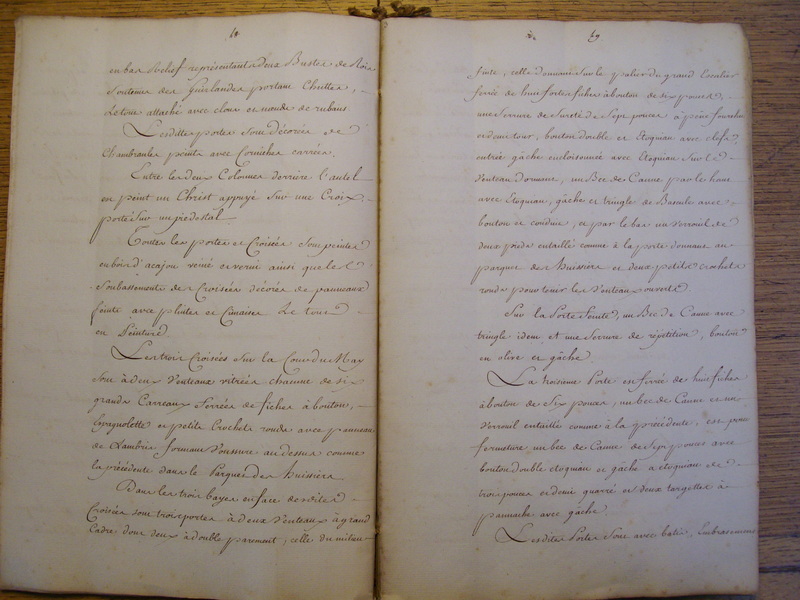 en bas Relief représentant deux Bustes de Rois
Soutenus des Guirlandes portant Chutes,
Letout attaché avec clous et nœuds de rubans
Lesdittes portes sont décorées de
Chambranles peints avec Corniches carrées.
Entre les deux Colonnes derrière l'autel
en peint un Christ appuyé Sur une Croix,
porté Sur un piedestal
Toutes les portes et Croisées Sont peintes
en bois d'acajou veiné et verni ainsi que les
Soubassements des Croisées décorés de panneaux
feints avec plintes et Cimaises Le tout
en Peinture.
Les trois Croisées Sur la Cour du May
Sont à deux Venteaux vitrées chacune de six
grands Carreaux Ferrées de fiches à bouton,
Espagnolette et petits Crochets ronds avec panneau
de Lambris formant Voussure au dessus comme
la précédente dans le Parquet des huissiers
Dans les trois bayes en face desdites
Croisées sont trois portes à deux Venteaux à grand
Cadre dont deux à double parement, celle du milieu
49
feinte, celle donnant Sur le palier du grand Escalier
ferrée de huit fortes fiches à bouton de six pouces,
une Serrure de Sureté de Sept pouces à peine fourchu
et demi tour, bouton double et Etoquiau avec clefs,
entrée gâche encloisonnée avec Etoquiau Sur le
Venteau dormant, un Bec de Canne par le haut
avec Etoquiau, gâche et tringle de Bascule avec
bouton et conduit, et par le bas un verrouil de
deux pieds entaillé comme à la porte donnant au
parquet des huissiers et deux petits crochets
ronds pour tenir les Venteaux ouverts
Sur la Porte feinte, un Bec de Canne avec
tringle idem et une Serrure de répétition, bouton
en olive et gâche.
La troisieme Porte en ferrée de huit fiches
à bouton de Six pouces, un bec de Canne et un
Verrouil entaillé comme à la précédente, est pour
fermeture un bec de Canne de Sept pouces avec
bouton double etoquiau et gâche a etoquiau de
trois pouces et demi quarré et deux targettes à
pannache avec gâche
Lesdites Portes Sont avec batis, Embrasements